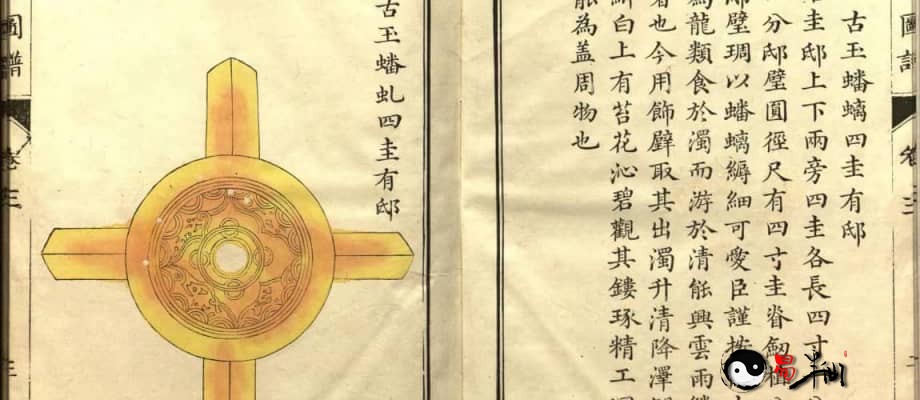 古玉蟠螭四圭有邸
圭邸上下兩旁四圭各長四寸
分邸璧圓徑尺有四寸圭眷劒
邸璧琱以蟠螭縟細可愛臣謹按
為龍類食於濁而游於清能興雲雨
者也今用飾璧取其出濁升清降澤
白上有苔花沁碧觀其鏤琢精工
為盖周物也
古玉蟠虬四圭有邸
圖譜
卷三
三
圖譜
卷三